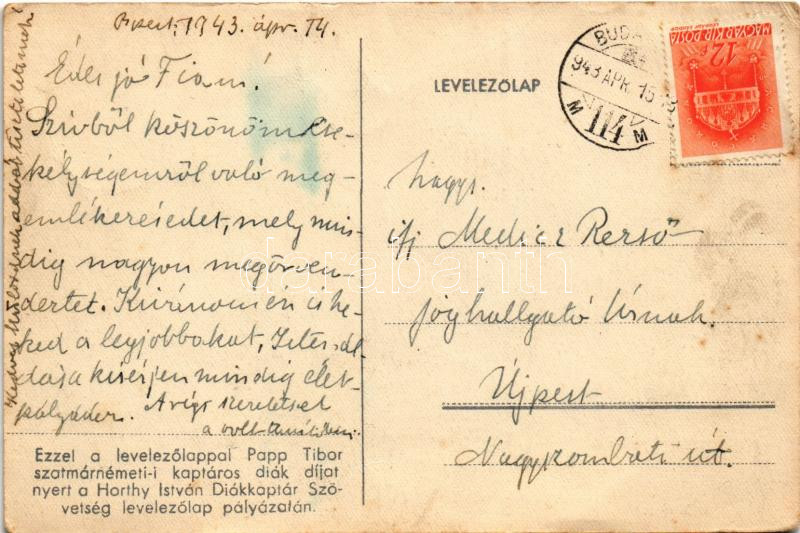 Bpest, 1943. ápr. 14.
Édes jó Fiam!
Szivből köszönöm cse-
kélységemről való meg-
emlékezésedet, mely min-
dig nagyon megörven-
deztet. Kivánom én is ne-
ked a legjobbakat, Isten ál-
dása kisérjen mindig élet-
pályádon. A régi szeretettel
a volt tanítód
Kedves szüleidnek add át tiszteletemet!
Ezzel a levelezőlappal Papp Tibor
szatmárnémeti-i kaptáros diák díjat
nyert a Horthy István Diákkaptár Szö-
vetség levelezőlap pályázatán.
LEVELEZŐLAP
BUDA
943 APR. 15
M 114 M
MAGYAR KIR. POSTA
12 f
Nagys.
ifj Medicz Rezső
joghallgató Úrnak.
Újpest
Nagyszombati út.
darabanth